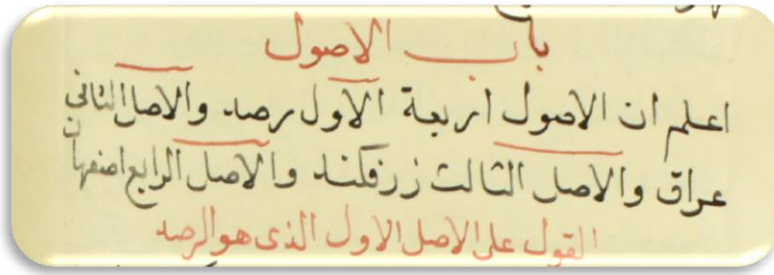 باب الاصول
اعلم ان الاصول اربعة الاول رصد والاصل الثاني
عراق والاصل الثالث زرفكند والاصل الرابع اصفهان
القول على الاصل الاول الذى هو الرصد